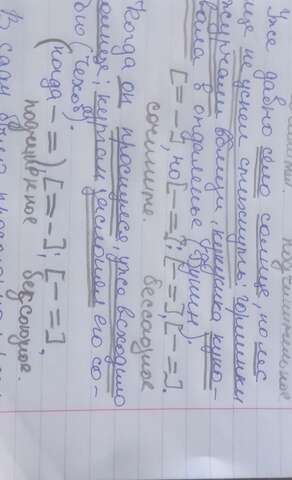 подчинительное
Уже давно село солнце, но лес
ще не успел стихнуть: горлинки
журчали вблизи, кукушка куко-
вала в отдаленье (Бунин).
[= -], но [- =]: [- =], [- =].
сочинит. бессоюзное
Когда он проснулся, уже всходило
солнце; курган заслонял его со-
бою (Чехов).
(когда - =), [= -]; [- =]
подчинительное бессоюзное.
В саду было